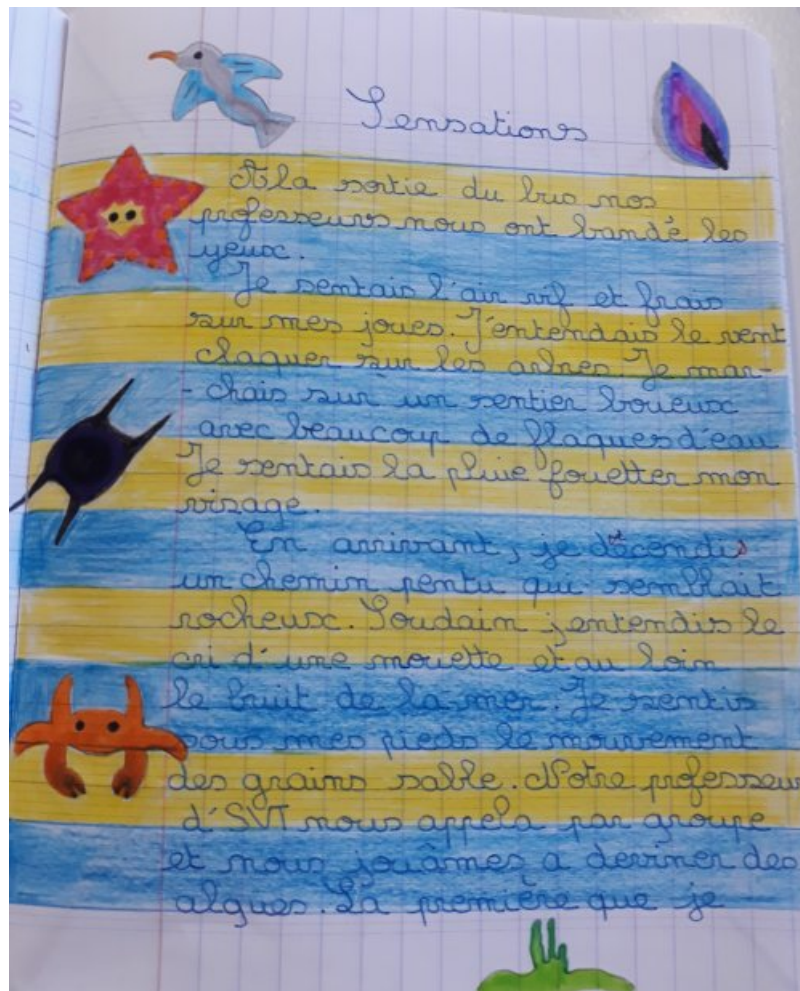 Sensations
A la sortie du bus nos
professeurs nous ont bandé les
yeux.
Je sentais l'air vif et frais
sur mes joues. J'entendais le vent
claquer sur les arbres. Je mar-
- chais sur un sentier boueux
avec beaucoup de flaques d'eau
Je sentais la pluie fouetter mon
visage.
En arrivant, je décendis
un chemin pentu qui semblait
rocheux. Soudain j'entendis le
cri d'une mouette et au loin
le bruit de la mer. Je sentis
sous mes pieds le mouvement
des grains sable. Notre professeur
d'SVT nous appela par groupe
et nous jouâmes a deviner des
algues. La première que je